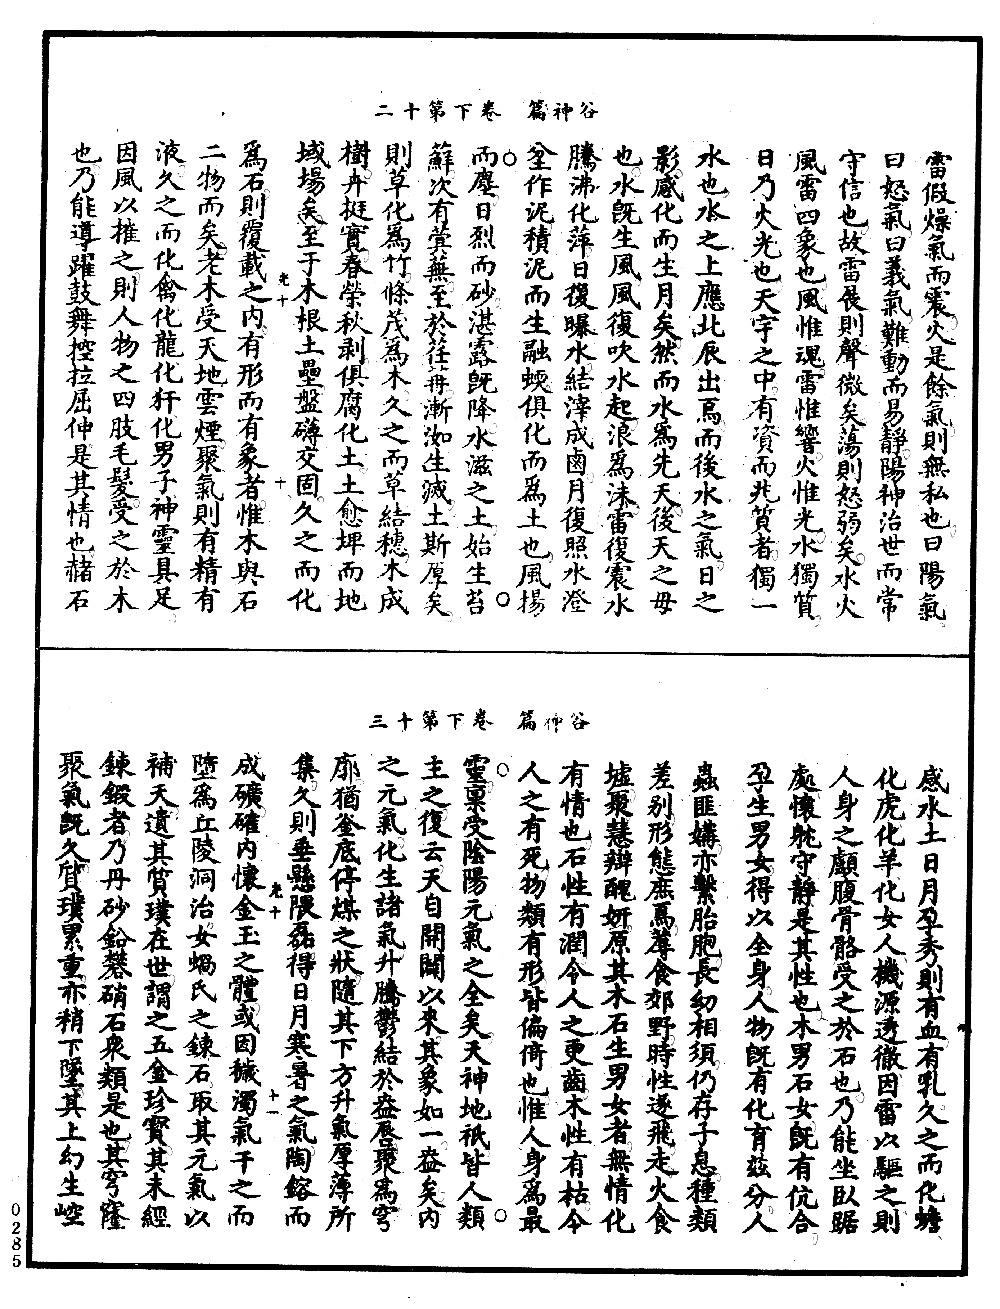 谷神篇　卷下第十二
雷假燥氣而震火是餘氣則無私也曰陽氣
曰怒氣曰義氣難動而易靜陽神治世而常
守信也故雷晨則聲微矣蕩則怒弱矣水火
風雷四象也風惟魂雷惟響火惟光水獨質
日乃火光也天宇之中有資而兆質者獨一
水也水之上應北辰出焉而後水之氣日之
影感化而生月矣然而水為先天後天之母
也水既生風風復吹水起浪為沫雷復震水
騰沸化萍日復曝水結滓成鹵月復照水澄
坌作泥積泥而生融蝡俱化而為土也風揚
而塵日烈而砂湛露既降水滋之土始生苔
蘚次有蕒蕪至於荏苒漸洳生滅土斯厚矣
則草化為竹條茂為木久之而草結穗木成
樹卉挺實春榮秋剥俱腐化土土愈坪而地
域場矣至于木根土壘盤礡交固久之而化
為石則覆載之內有形而有象者惟木與石
二物而矣老木受天地雲煙聚氣則有精有
液久之而化禽化龍化犴化男子神靈具足
因風以摧之則人物之四肢毛髮受之於木
也乃能導躍鼓舞控拉屈伸是其情也赭石
谷神篇　卷下第十三
感水土日月孕秀則有血有乳久之而化蟾
化虎化羊化女人機源透徹因雷以驅之則
人身之顱腹骨骼受之於石也乃能坐臥踞
處懷躭守靜是其性也木男石女既有伉合
孕生男女得以全身人物既有化育茲分人
蟲匪媾亦繫胎胞長幼相須仍存子息種類
差別形態庶焉蓐食郊野時性遂飛走火食
墟聚慧辯醜妍原其木石生男女者無情化
有情也石性有潤今人之更齒木性有枯今
人之有死物類有形皆偏倚也惟人身為最
靈稟受陰陽元氣之全矣天神地祇皆人類
主之復云天自開闢以來其象如一益矣內
之元氣化生諸氣升騰鬱結於益唇聚為穹
廓猶釜底停煤之狀隨其下方升氣厚薄所
集久則垂懸隈磊得日月寒暑之氣陶鎔而
成礦確內懷金玉之體或因穢濁氣干之而
墮為丘陵洞治女媧氏之鍊石取其元氣以
補天遺其質璞在世謂之五金珍寶其未經
鍊鍛者乃丹砂鉛礬硝石衆類是也其穹窿
聚氣既久質璞累重亦稍下墜其上幻生崆
卷十
十
卷十
十一
0285